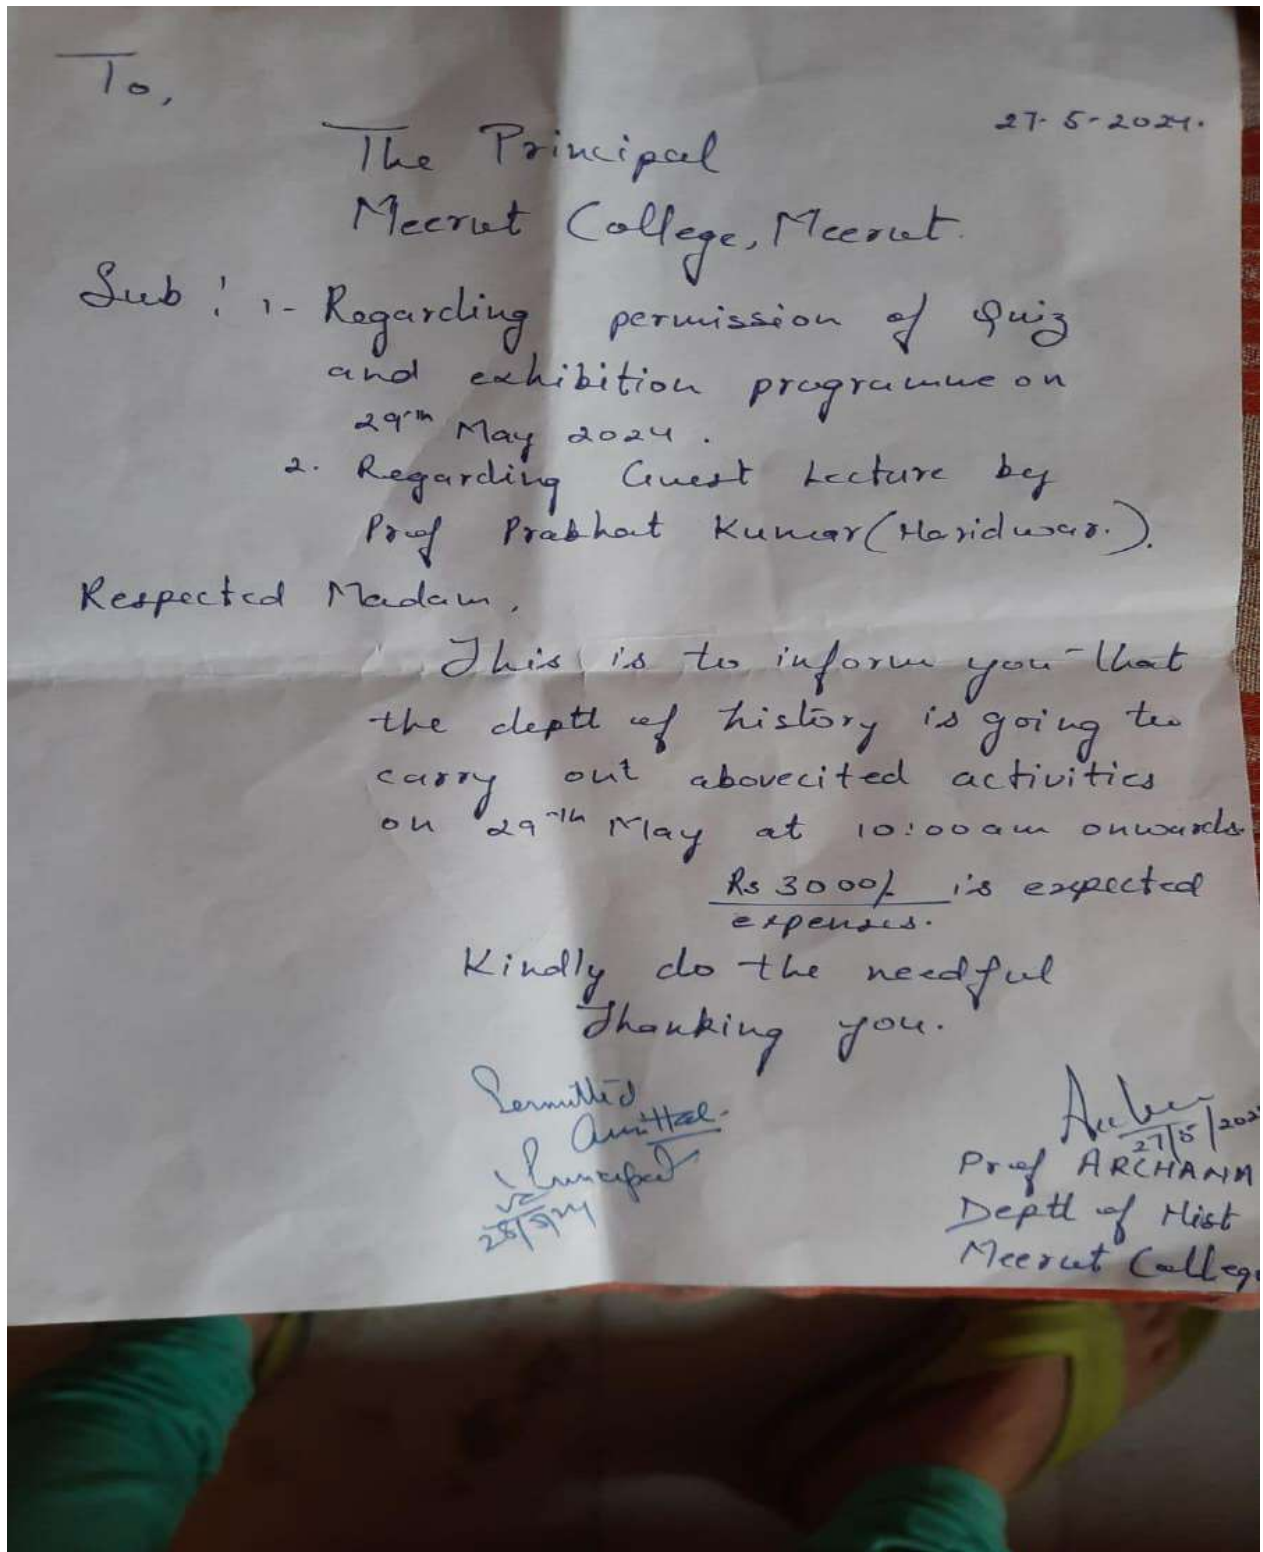 To,
27-5-2024.
The Principal
Meerut College, Meerut.
Sub : 1- Regarding permission of Quiz
and exhibition programme on
29th May 2024.
2. Regarding Guest Lecture by
Prof Prabhat Kumar (Haridwar.).
Respected Madam,
This is to inform you that
the deptt of history is going to
carry out abovecited activities
on 29th May at 10:00am onwards
Rs 3000/- is expected
expenses.
Kindly do the needful
Thanking you.
Permitted
Principal
28/5/24
27/5/202
Prof ARCHANA
Deptt of Hist
Meerut College